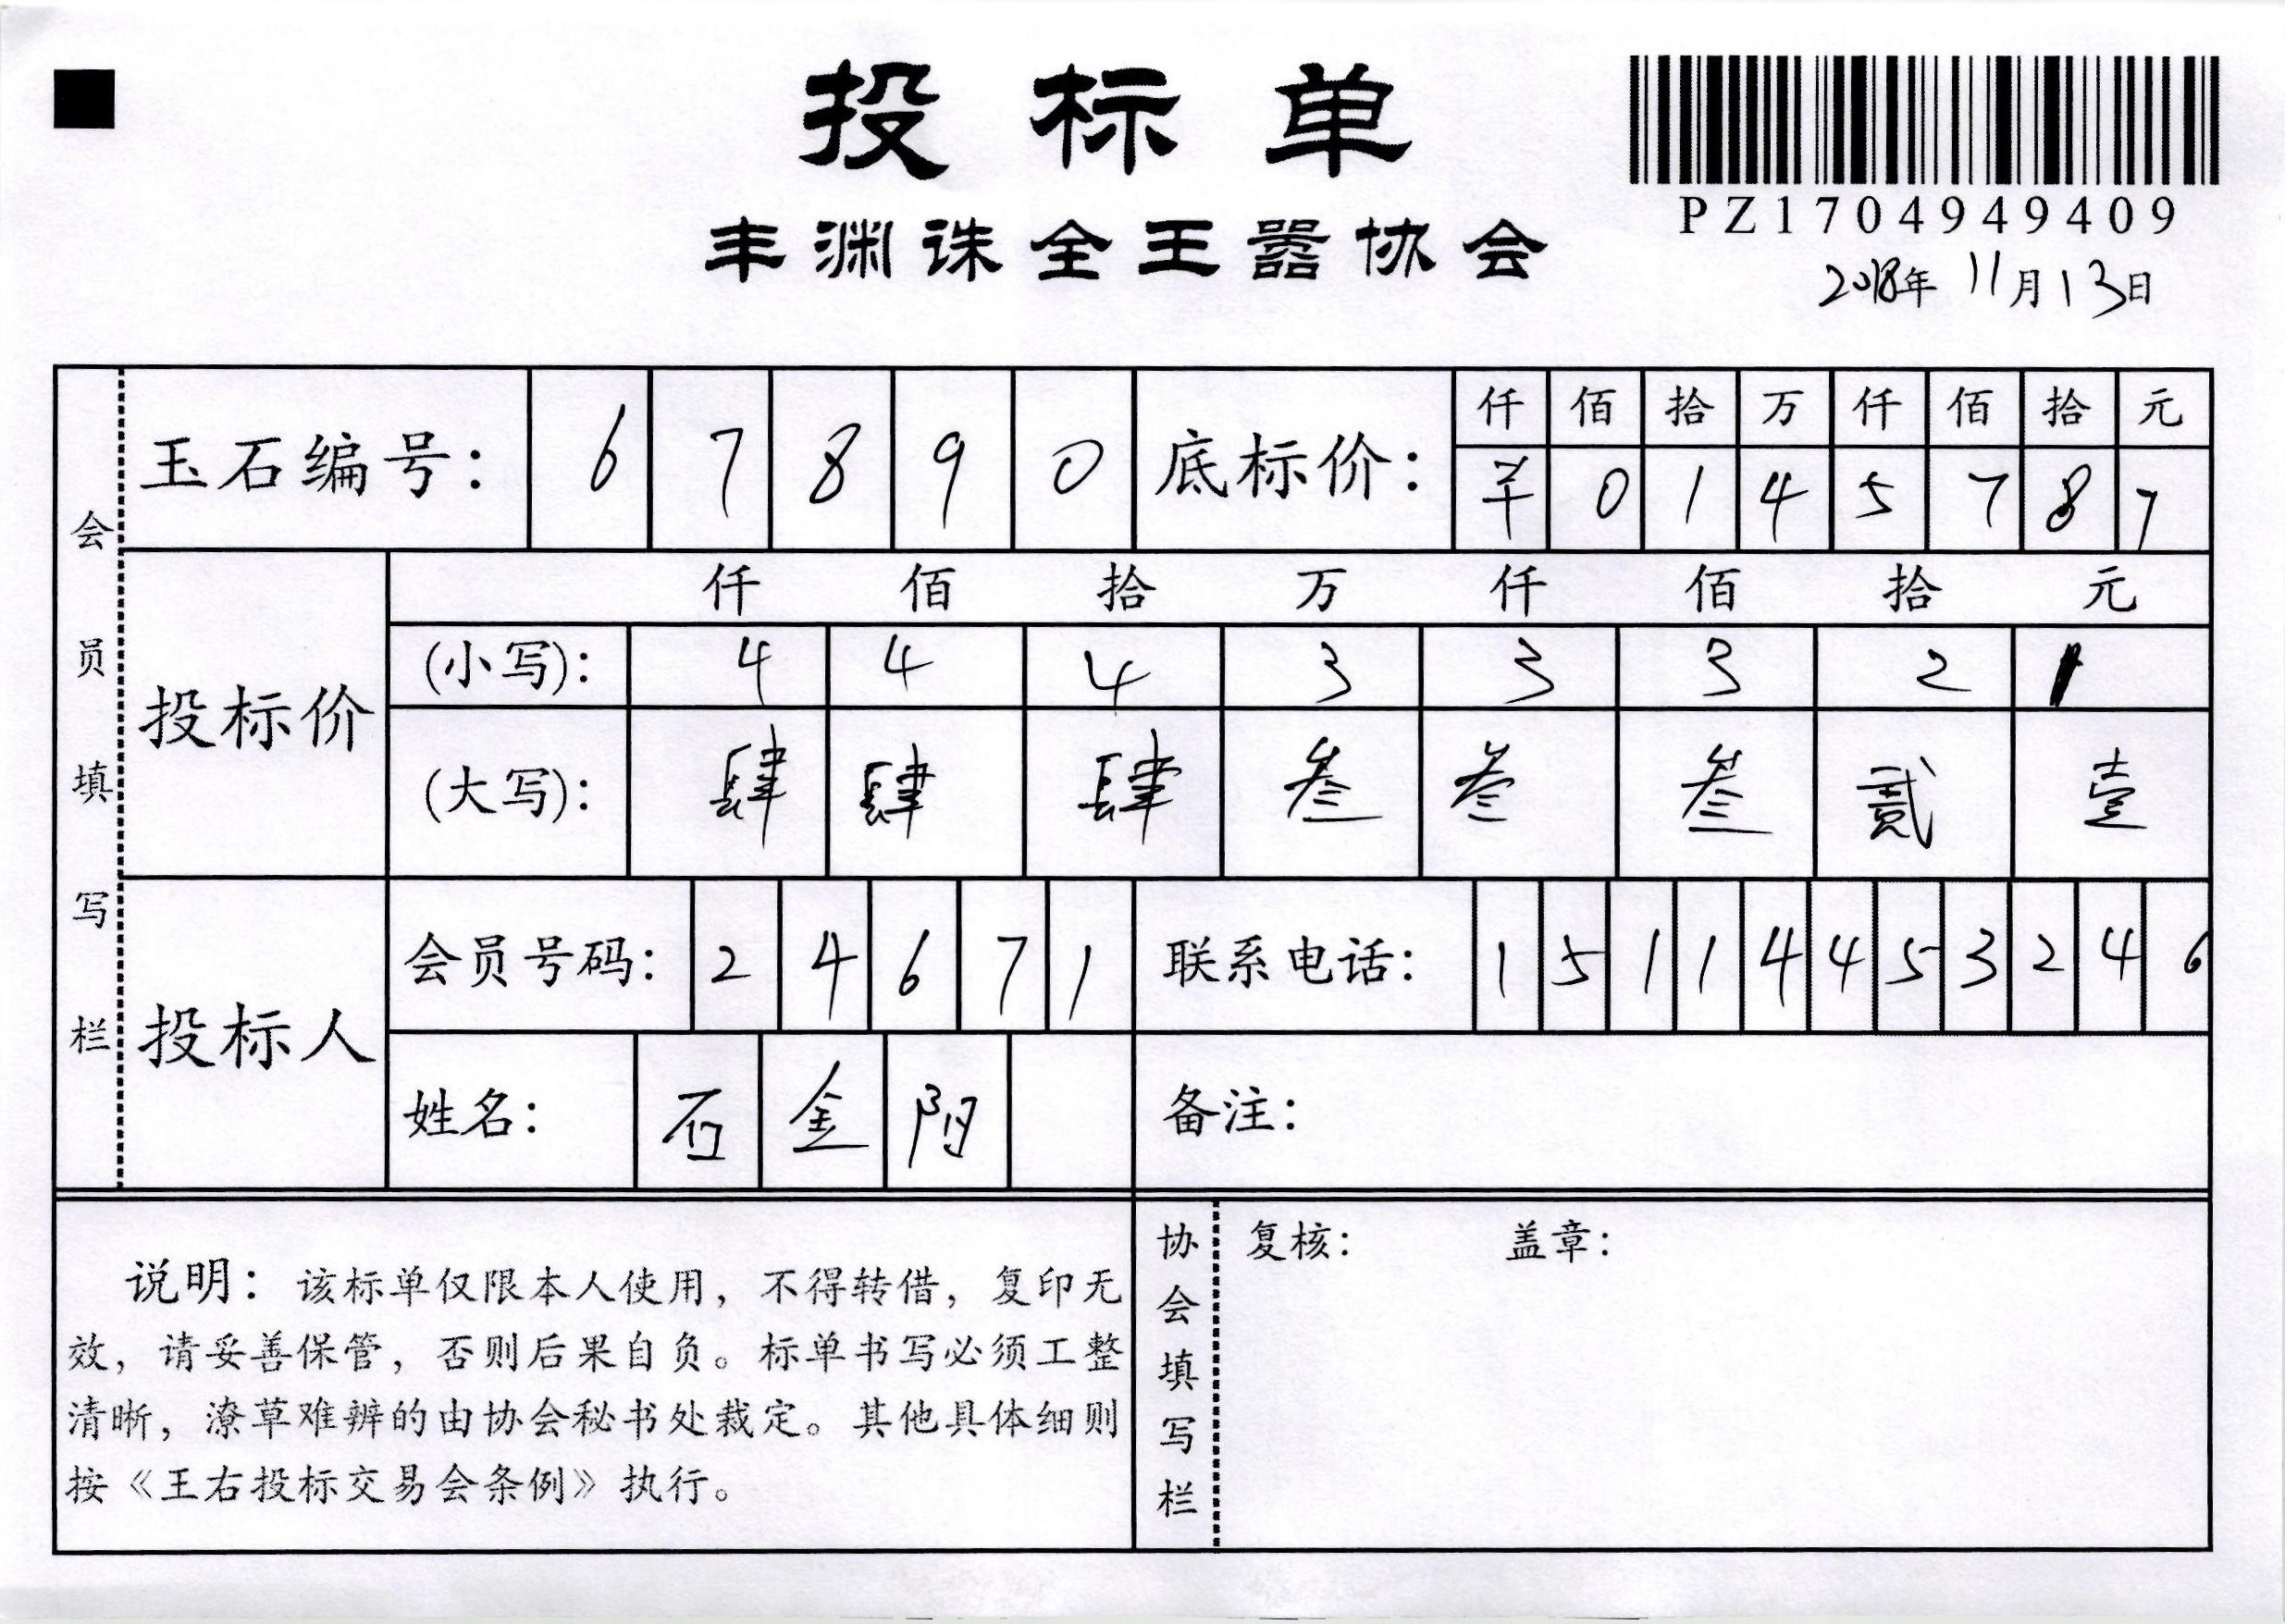 投标单
丰渊诛全王嚣协会
PZ1704949409
2018年 11月13日
会员填写栏
玉石编号: 6 7 8 9 0 底标价: 仟 佰 拾 万 仟 佰 拾 元
0 1 4 5 7 8 7
投标价
仟 佰 拾 万 仟 佰 拾 元
(小写): 4 4 4 3 3 3 2 1
(大写): 肆 肆 肆 叁 叁 叁 贰 壹
投标人
会员号码: 2 4 6 7 1 联系电话: 1 5 1 1 4 4 5 3 2 4 6
姓名: 石 金 阳 备注:
说明: 该标单仅限本人使用, 不得转借, 复印无
效, 请妥善保管, 否则后果自负。标单书写必须工整
清晰, 潦草难辨的由协会秘书处裁定。其他具体细则
按《王右投标交易会条例》执行。
协会填写栏
复核: 盖章: